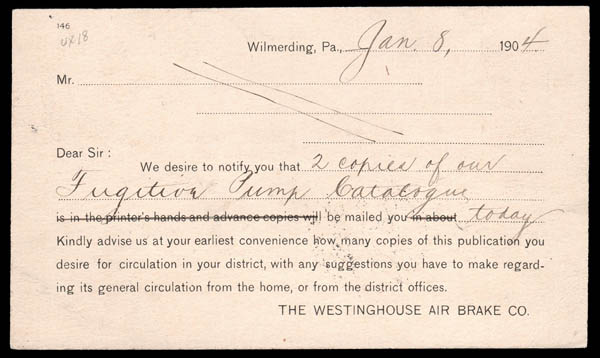 146
UX18
Wilmerding, Pa., Jan. 8, 1904.
Mr.
Dear Sir:
We desire to notify you that 2 copies of our
Fugitive Pump Catalogue
is in the printer's hands and advance copies will be mailed you in about today
Kindly advise us at your earliest convenience how many copies of this publication you
desire for circulation in your district, with any suggestions you have to make regard-
ing its general circulation from the home, or from the district offices.
THE WESTINGHOUSE AIR BRAKE CO.